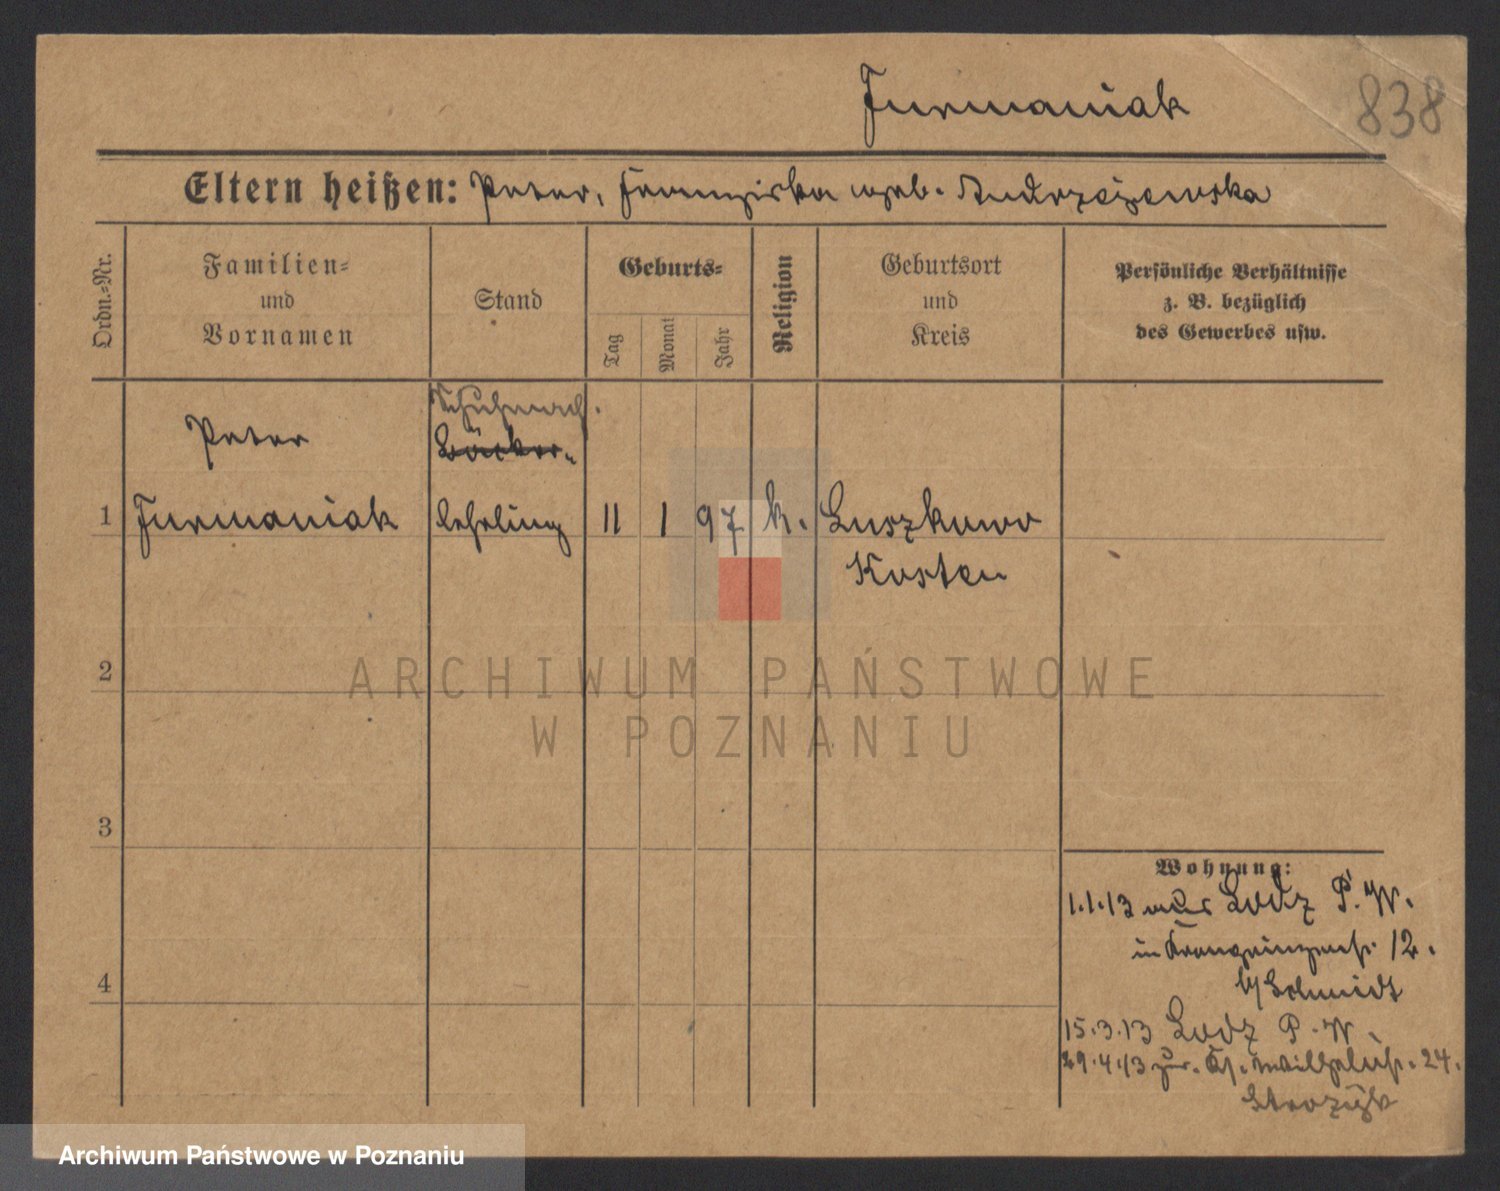 Furmaniak
838
Eltern heißen: Peter, Franziska geb. Andrzejewska
Ordn.-Nr.
Familien- und Vornamen
Stand
Geburts-
Tag
Monat
Jahr
Religion
Geburtsort und Kreis
Persönliche Verhältnisse z. B. bezüglich des Gewerbes usw.
Schuhmach.
Peter
Bäcker-
1 Furmaniak lehrling 11 1 97 k. Luszkowo
Kosten
2
ARCHIWUM PAŃSTWOWE
W POZNANIU
3
Wohnung:
1.1.13 aus Lodz P. W.
in Kronprinzenstr. 12.
b/ Schmidt
4
15.3.13 Lodz P. W.
29.4.13 zur. Wilhelmstr. 24.
Strozyk
Archiwum Państwowe w Poznaniu